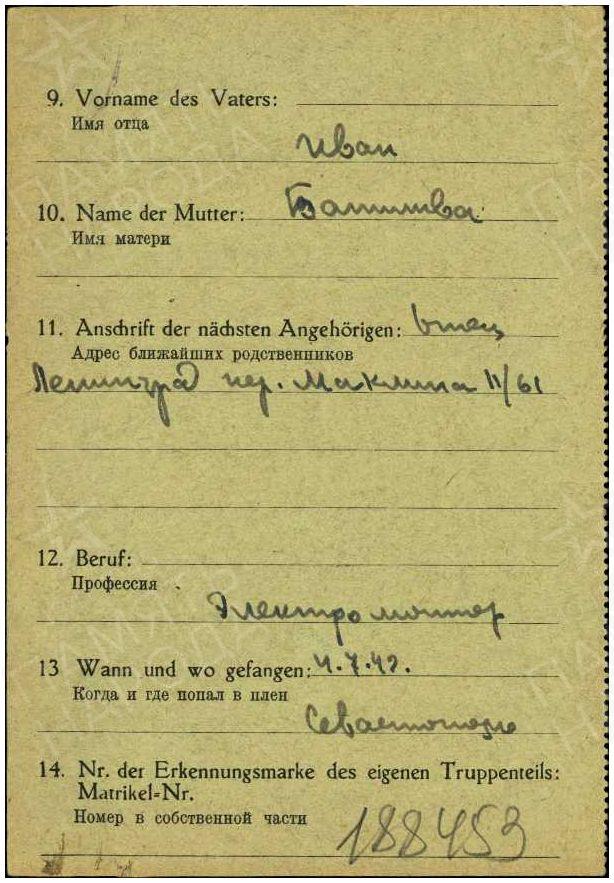 9. Vorname des Vaters:
Имя отца
Иван
10. Name der Mutter:
Имя матери
11. Anschrift der nächsten Angehörigen: Отец
Адрес ближайших родственников
Ленинград пер. Маклина 11/61
12. Beruf:
Профессия
Электромонтер
13 Wann und wo gefangen: 4.7.42.
Когда и где попал в плен
Севастополь
14. Nr. der Erkennungsmarke des eigenen Truppenteils:
Matrikel-Nr.
Номер в собственной части
188453